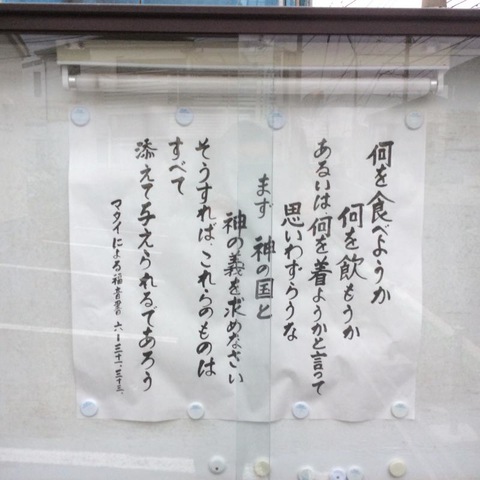 何を食べようか
何を飲もうか
あるいは、何を着ようかと言って
思いわずらうな
まず 神の国と
神の義を求めなさい
そうすれば、これらのものは
すべて
添えて与えられるであろう
マタイによる福音書 六-三十一、三十三、